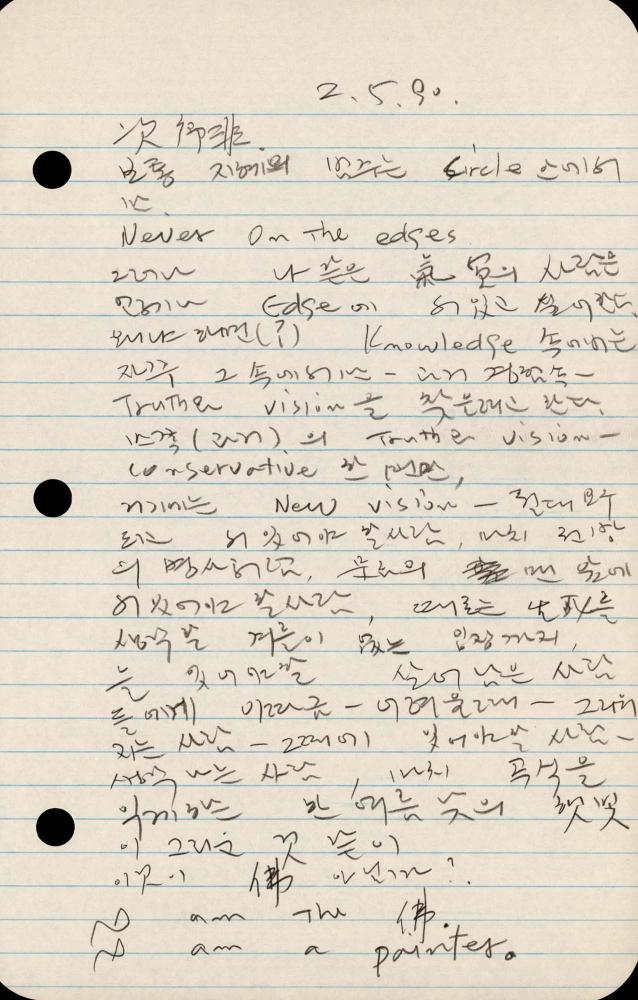 2. 5. 90.
次
보통 지혜의 범주는 circle 속에서
Never On The edges
그러나 나 같은 氣 의 사람은
언제나 Edge에 서 있고
왜냐하면(?) Knowledge 속에는
자꾸 그 속에서만 - 과거 경험 속 -
Truth와 vision을 찾을려고 한다.
(과거)의 Truth와 vision -
conservative 한 반면,
거기에는 New vision - 절대
서 있어야 할 사람, 마치
의 병사처럼, 맨 앞에
서 있어야 할 사람, 때로는 生死를
생각할 겨를이 없는 입장까지,
늘 있어야 할 살어 남은 사람
들에게 이따금 - 어려울 때 - 그리워
지는 사람 - 그때에 있어야 할 사람 -
생각나는 사람, 마치 곡식을
익게 하는 한 여름 낮의 햇빛
이 그리운 것 같이
이것이 佛 아닌가?
I am The 佛.
I am a painter.